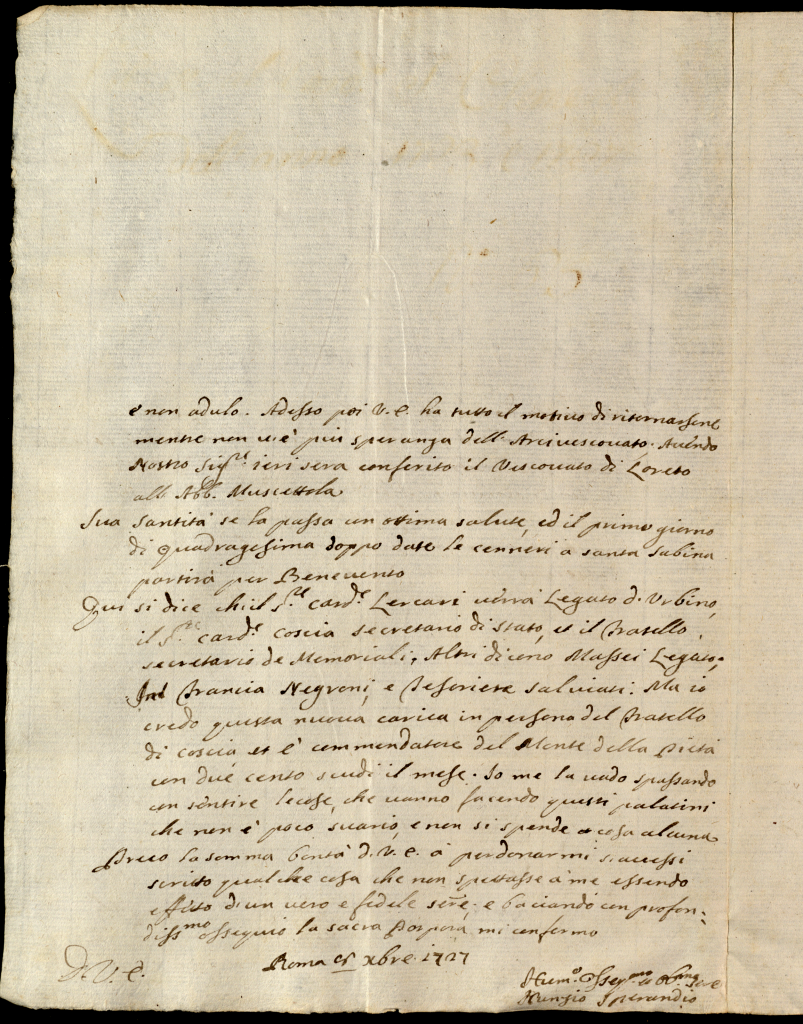 e non adulo. Adesso poi V. E. ha tutto il motivo di ritornarsene
mentre non vi è più speranza dell'Arcivescovato. Avendo
Nostro Sig.re ieri sera conferito il Vescovato di Loreto
all'Abb. Muscettola
Sua Santità se la passa con ottima salute, ed il primo giorno
di quadragesima doppo date le cenneri a santa Sabina
partirà per Benevento
Qui si dice ch'il S.re Card.e Lercari verrà Legato d'Urbino,
il S.re Card.e Coscia secretario di stato, et il Fratello
secretario de Memoriali, Altri dicono Massei Legato,
Francia Negroni, e Tesoriere Salviati. Ma io
credo questa nuova carica in persona del Fratello
di Coscia et è commendatore del Monte della Pietà
con due cento scudi il mese. Io me la vado spassando
con sentire le cose, che vanno facendo questi palatini
che non è poco svario, e non si spende cosa alcuna
Preco la somma bontà d. V. E. à perdonarmi s'avessi
scritto qualche cosa che non spettasse a me essendo
effetto d'un vero e fedele ser.e, e baciando con profon:
diss.mo ossequio la sacra Porpora mi confermo
Roma xbre 1727
D. V. E.
Hum.o Osseq.mo
Nunzio Sperandio